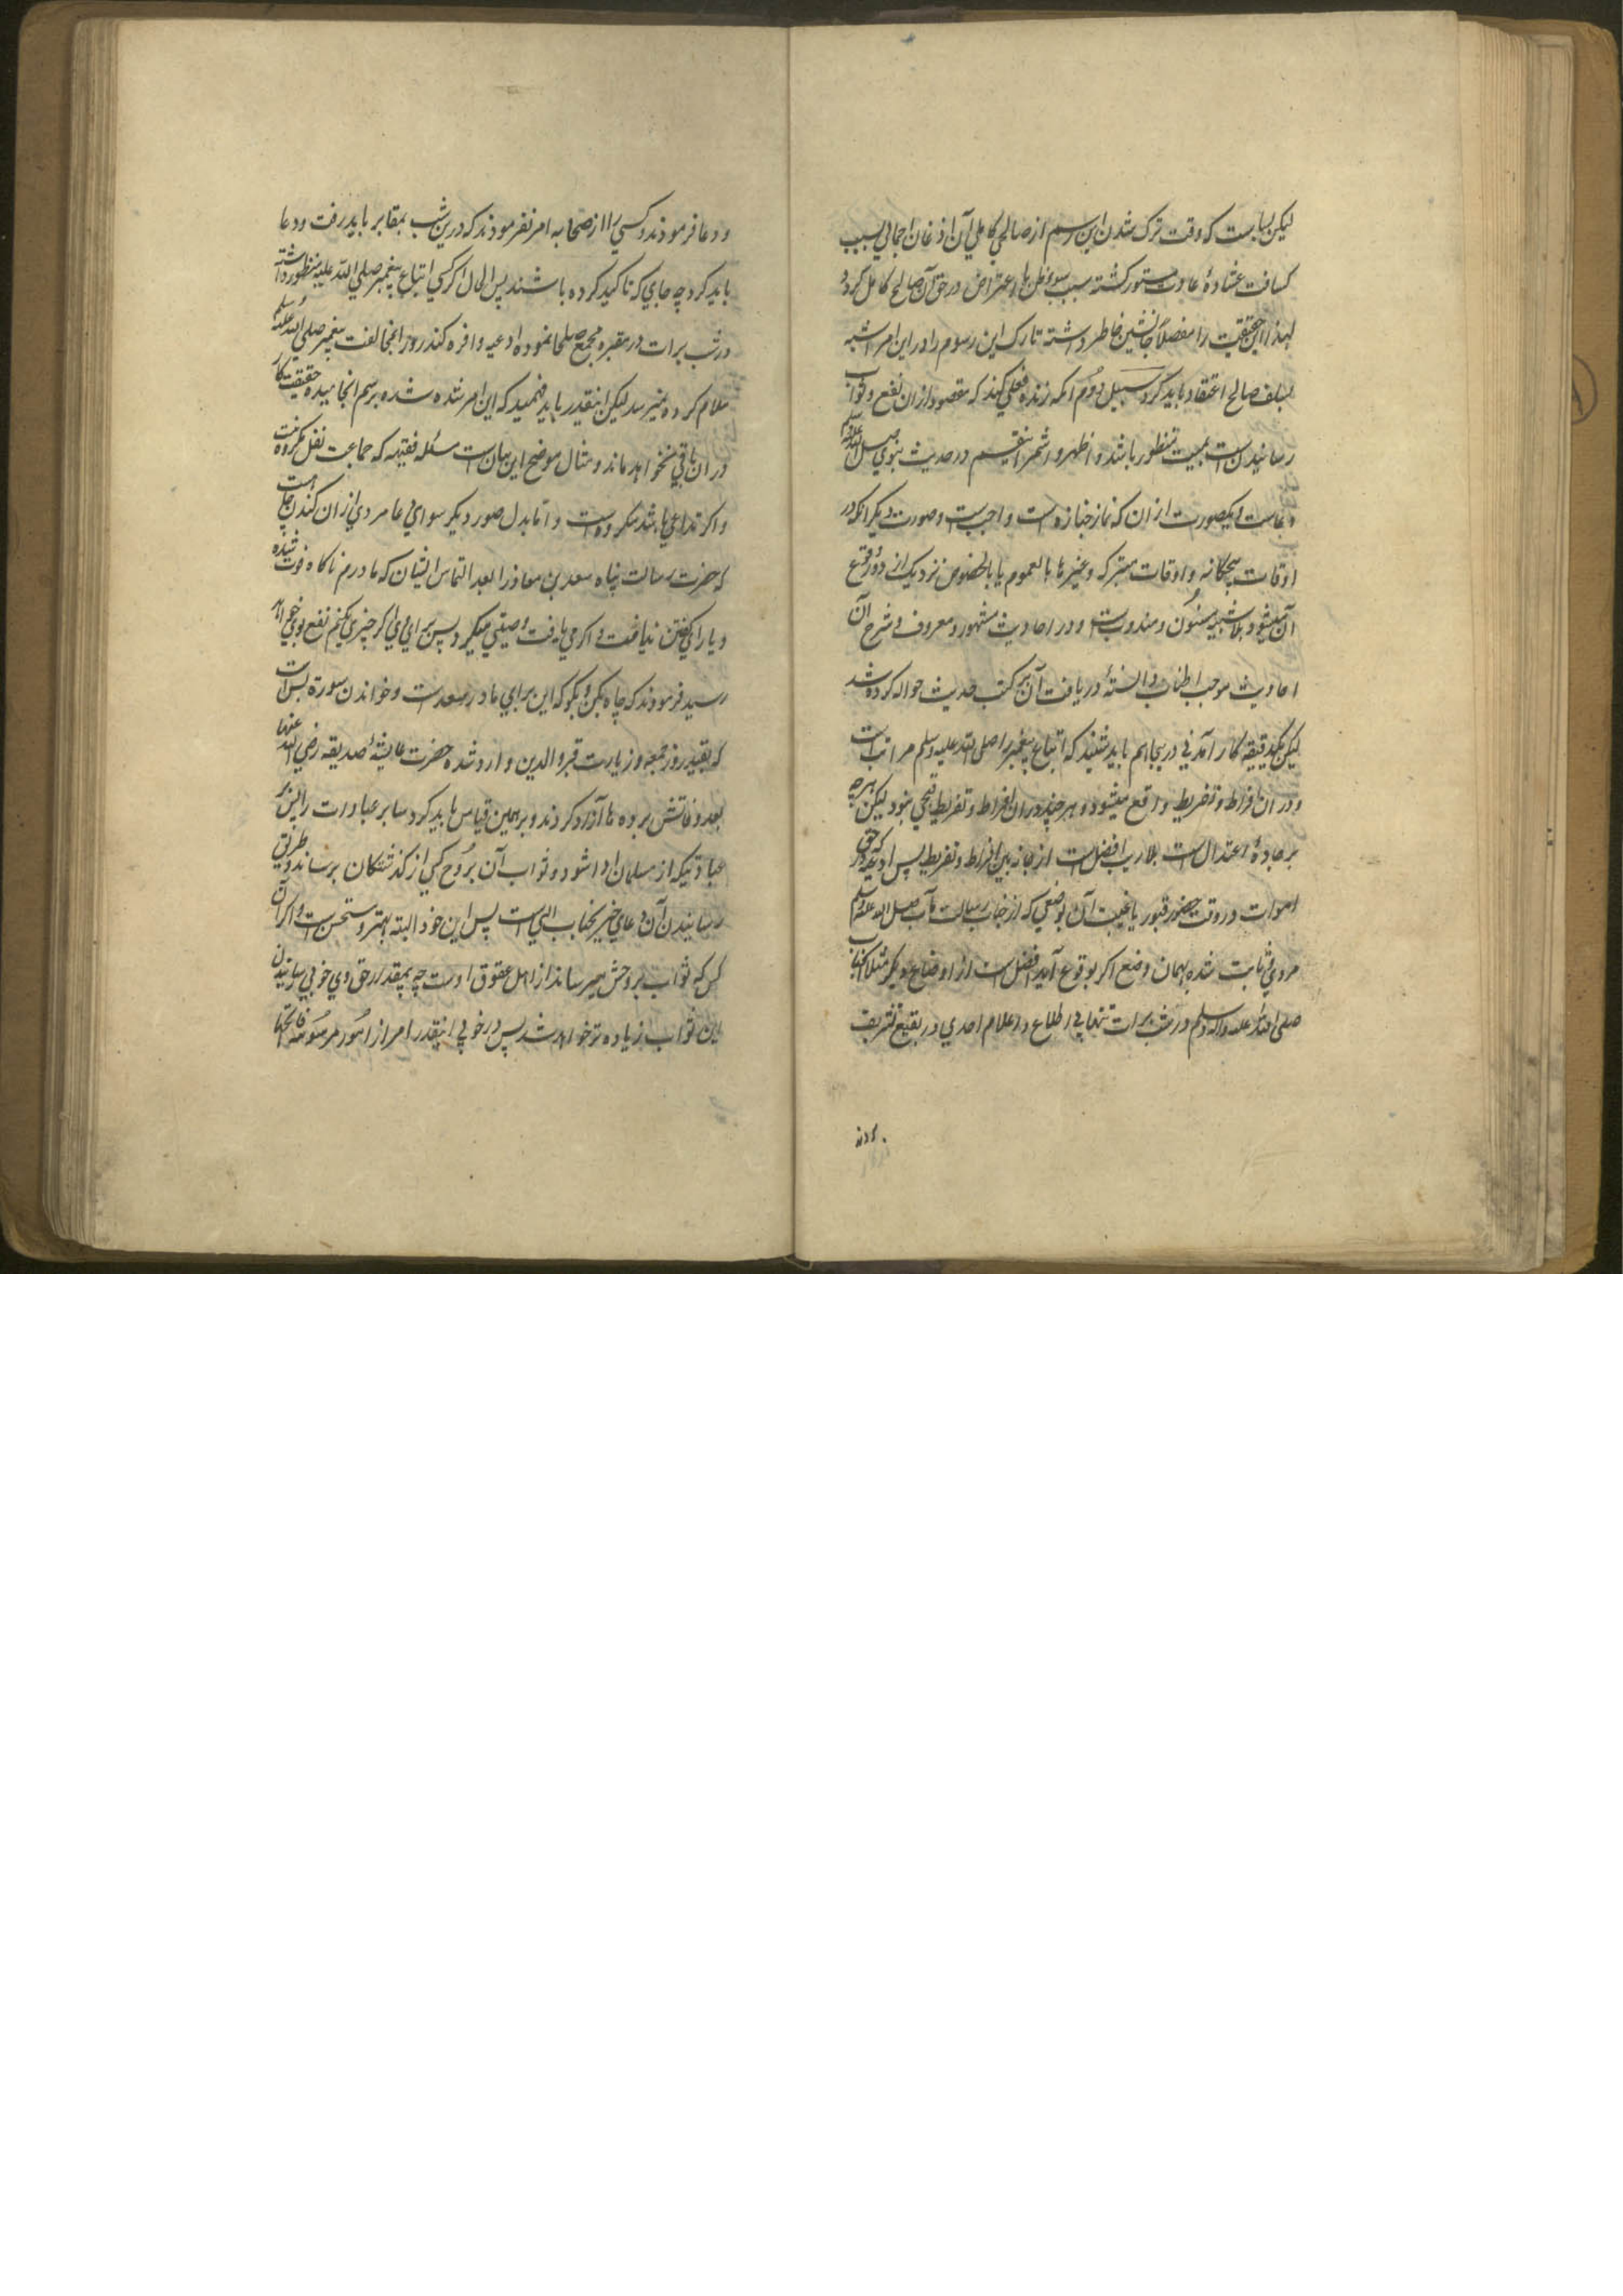 لیکن بسا است که وقت ترک شدن این رسم از صالحی کاملی آن اذعان اجمالی بسبب
کسافت غشاوهٔ عادت مستور گشته سبب سوء ظن یا اعتراض در حق آن صالح کامل گردد
لهذا این حقیقت را مفصلاً جانشین خاطر داشته تارک این رسوم را در این امر اشبه
بسلف صالح اعتقاد باید کرد سبیل دوم آنکه زنده فعلی کند که مقصود از ان نفع و ثواب
رسانیدن است بمیت منظور باشد و اظهر و اشهر اینقسم در حدیث نبوی صلی الله علیه وسلم
دعاست و یکصورت از ان که نماز جنازه است واجبست و صورت دیگر آنکه در
اوقات پنجگانه و اوقات متبرکه و غیرها بالعموم یا بالخصوص نزدیک از دور وقوع
آن میشود بلا شبهه مسنون و مندوبست و در احادیث مشهور و معروف و شرح آن
احادیث موجب اطناب و البتهٔ دریافت آن بر کتب حدیث حواله کرده شد
لیکن یک دقیقه کار آمدنی در ینجا هم باید شنید که اتباع پیغمبر را صلی الله علیه وسلم مراتب است
و در ان افراط و تفریط واقع میشود و هر چند در ان افراط و تفریط قبحی نبود لیکن هرچه
بر جادهٔ اعتدال است بلا ریب افضل است از جانبین افراط و تفریط پس ادعیه که در حق
اموات در وقت حضور قبور یا غیبت آن بوضعی که از جناب رسالت مآب صلی الله علیه وسلم
مروی و ثابت شده بهمان وضع اگر بوقوع آید افضل است از اوضاع دیگر مثلا آنجناب
صلی الله علیه وآله وسلم در شب برات تنها بی اطلاع و اعلام احدی در بقیع تشریف
بردند
و دعا فرمودند و کسی را از صحابه امر نفرمودند که درین شب بمقابر باید رفت و دعا
باید کرد چه جای که تاکید کرده باشند پس الحال اگر کسی اتباع پیغمبر صلی الله علیه وسلم منظور داشته
در شب برات در مقبره مجمع صلحا نموده ادعیه وافره کند او را بمخالفت پیغمبر صلی الله علیه وسلم
ملام کرده نمیرسد لیکن اینقدر باید فهمید که این امر شده شده برسم انجامیده حقیقت کار
در ان باقی نخواهد ماند و مثال موضح این بیان است مسئله فقهیه که جماعت نفل مکروه نیست
و اگر تداعی باشد مکروه است و اما بدل صور دیگر سوای دعا مردی از ان کندن چاه است
که حضرت رسالت پناه سعد بن معاذ را بعد التماس ایشان که مادرم ناگاه فوت شده
و یارای گفتن نیافت و اگر می یافت وصیتی میکرد پس برای وی اگر چیزی بکنم نفع بوی خواهد
رسید فرمودند که چاه بکن و بگو که این برای مادر سعد است و خواندن سوره یس است
که بقید روز جمعه و زیارت قبر والدین وارد شده حضرت عایشهٔ صدیقه رضی الله عنها
بعد وفاتش برده ها آزاد کردند و برهمین قیاس باید کرد سایر عبادات را پس هر
عبادتیکه از مسلمان ادا شود و ثواب آن بروح کسی از گذشتگان برساند و طریق
رسانیدن آن دعای خیر بجناب الهی است پس این خود البته بهتر و مستحسن است و اگر آن
کس که ثواب بروحش میرساند از اهل حقوق اوست چه بمقدار حق وی خوبی رسانیدن
این ثواب زیاده تر خواهد شد پس در خوبی اینقدر امر از امور مرسومه فاتحها